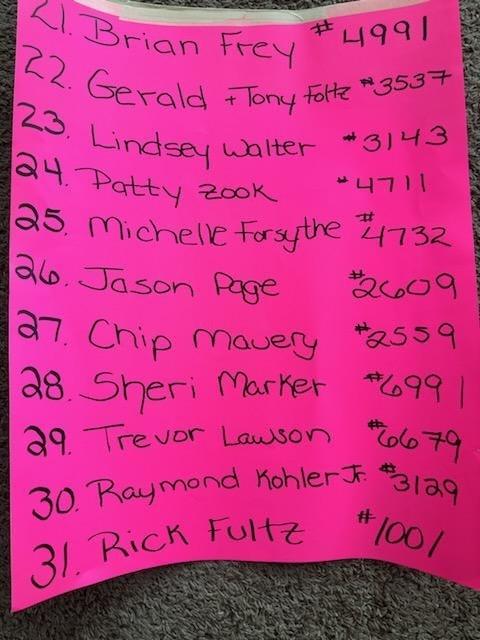 21. Brian Frey #4991
22. Gerald + Tony Foltz #3537
23. Lindsey Walter #3143
24. Patty Zook #4711
25. Michelle Forsythe #4732
26. Jason Page #2609
27. Chip Mavery #2559
28. Sheri Marker #6991
29. Trevor Lawson #6679
30. Raymond Kohler Jr. #3129
31. Rick Fultz #1001